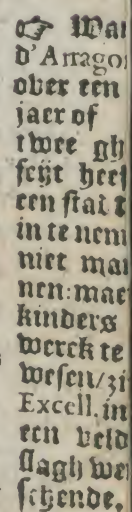 ☞ Wat
d'Arragon
over een
jaer of
twee gh
seijt heef
een stat
in te nem
niet mai
nen: maer
kinders
werck te
wesen/zi
Excell. in
een veld
slagh we
schende,